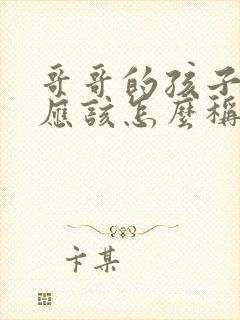 哥哥的孩子
應該怎麼稱
卞某